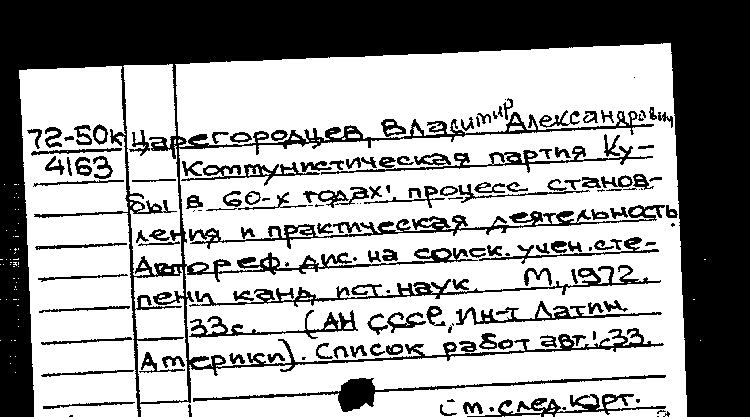 72-50к Царегородцев, Владимир Александрович
4163 Коммунистическая партия Ку-
бы в 60-х годах: процесс станов-
ления и практическая деятельность.
Автореф. дис. на соиск. учен. сте-
пени канд. ист. наук. М., 1972.
33с. (АН СССР, Ин-т Латин.
Америки). Список работ авт.: с.33.
См. след. карт.